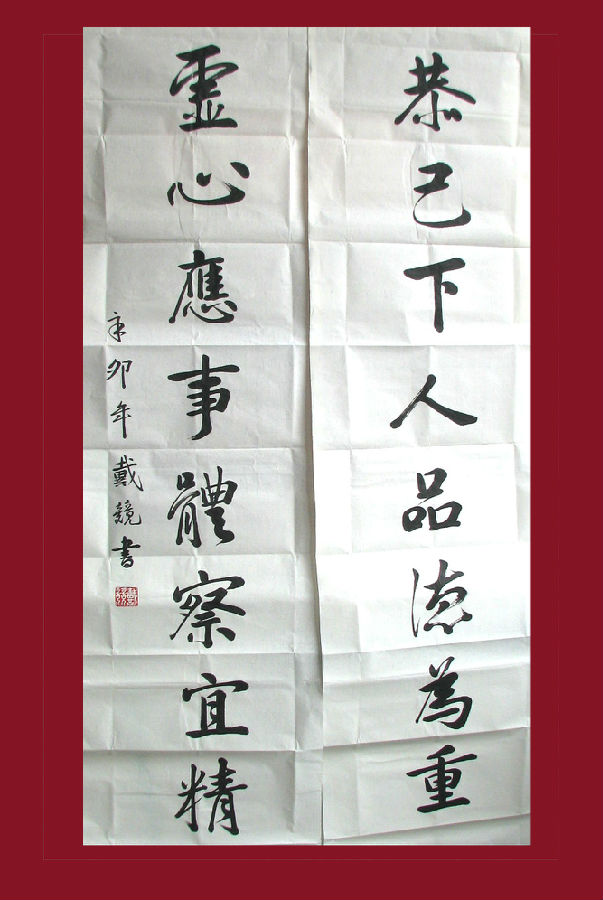 恭己下人品德為重
靈心應事體察宜精
辛卯年戴競書